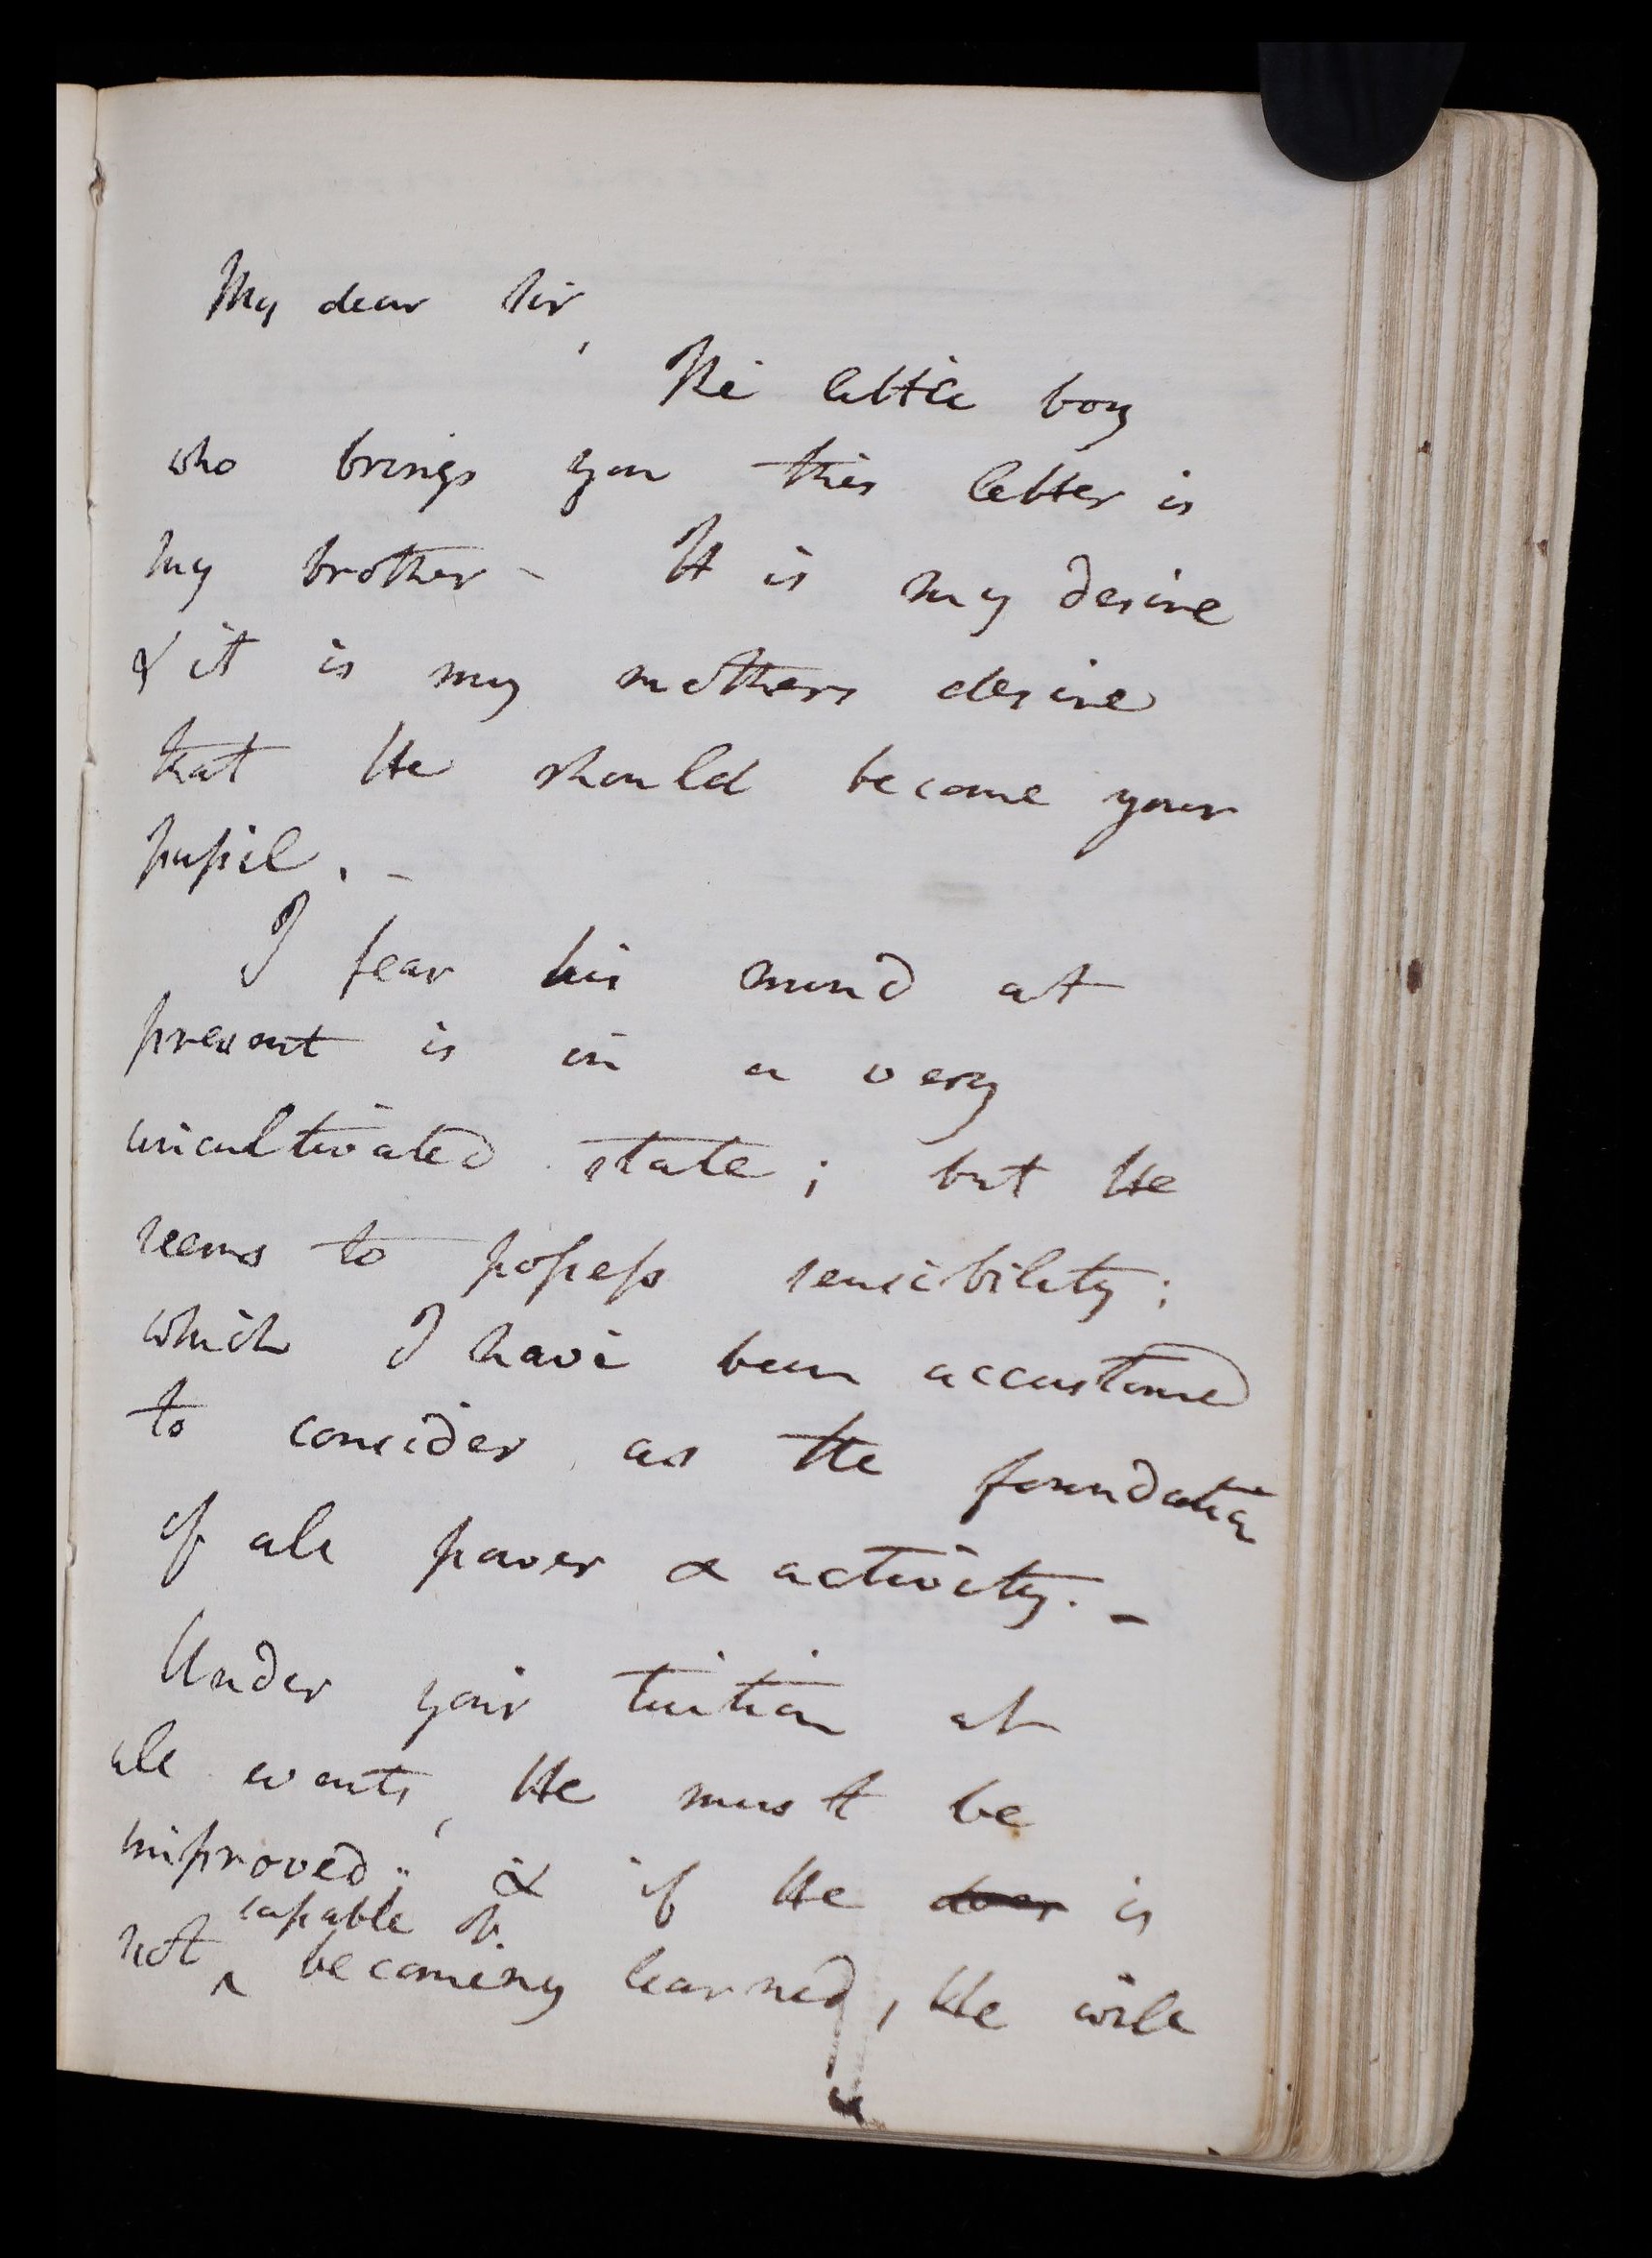 My dear Sir,
The little boy
who brings you this letter is
my brother - It is my desire
& it is my mothers desire
that He should become your
pupil. -
I fear his mind at
present is in a very
uncultivated state; but He
seems to possess sensibility;
which I have been accustomed
to consider as the foundation
of all power & activity. -
Under your tuition at
all events, He must be
improved; & if He does is
capable of
not ^ becoming learned, He will